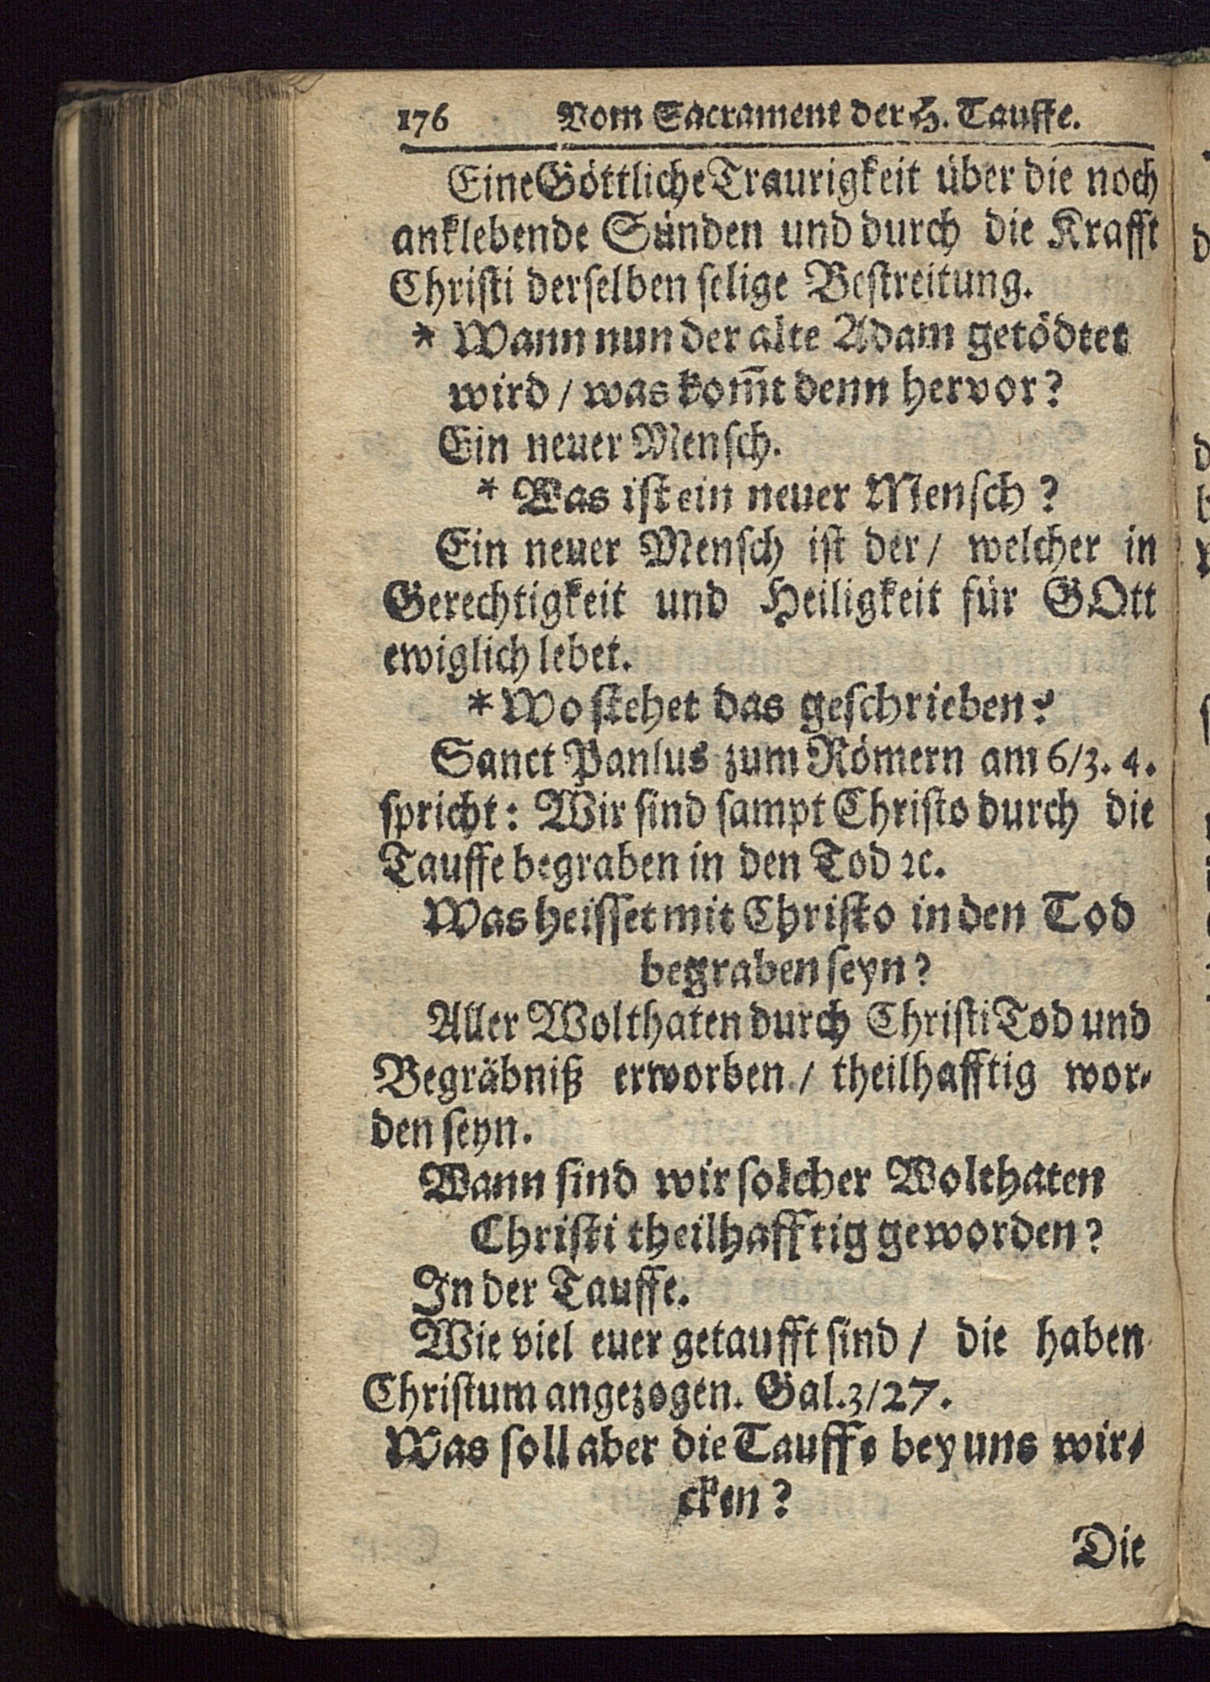 176 Vom Sacrament der H. Tauffe.
Eine Göttliche Traurigkeit über die noch
anklebende Sünden und durch die Krafft
Christi derselben selige Bestreitung.
* Wann nun der alte Adam getödtet
wird / was kom̅t denn hervor?
Ein neuer Mensch.
* Was ist ein neuer Mensch?
Ein neuer Mensch ist der / welcher in
Gerechtigkeit und Heiligkeit für GOtt
ewiglich lebet.
* Wo stehet das geschrieben?
Sanct Panlus zum Römern am 6/3. 4.
spricht: Wir sind sampt Christo durch die
Tauffe begraben in den Tod ꝛc.
Was heisset mit Christo in den Tod
begraben seyn?
Aller Wolthaten durch Christi Tod und
Begräbniß erworben / theilhafftig wor-
den seyn.
Wann sind wir solcher Wolthaten
Christi theilhafftig geworden?
In der Tauffe.
Wie viel euer getaufft sind / die haben
Christum angezogen. Gal. 3/27.
Was soll aber die Tauffe bey uns wir-
cken?
Die